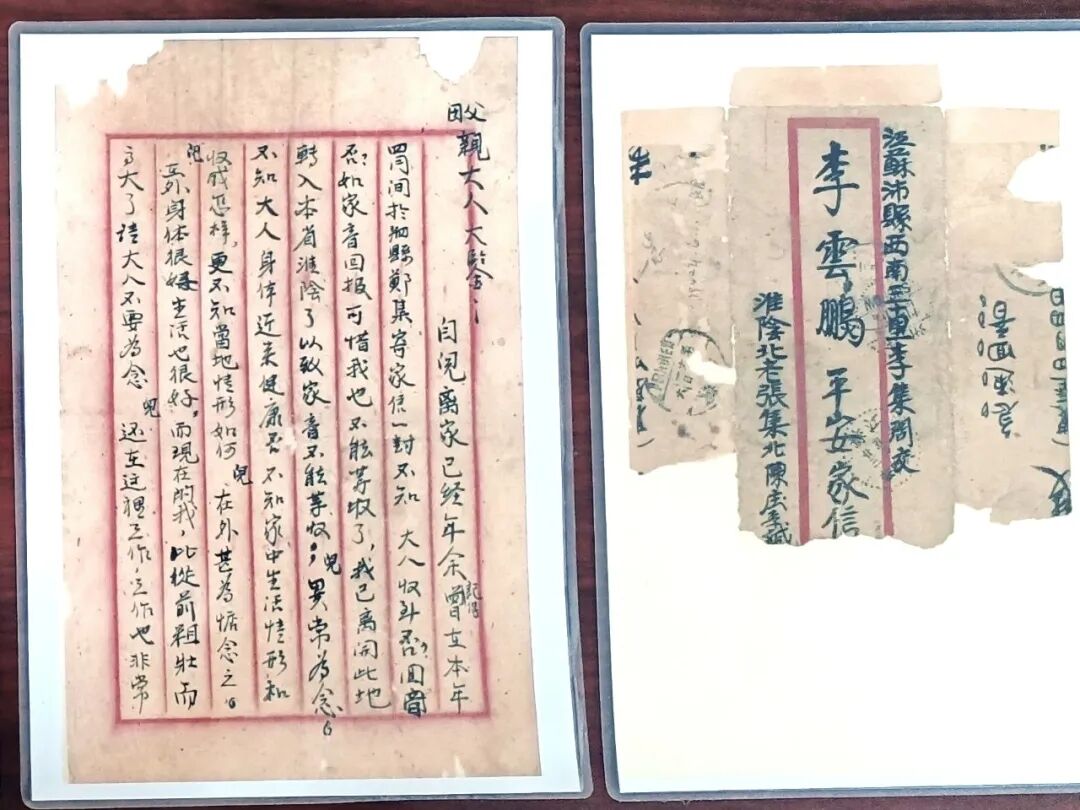 父親大人大鑒：
自兒离家已经年余記得曾在本年
间於泗縣鄭集寄家信一封不知 大人收到否?回音
否?如家音回报可惜我也不能等收了，我已离開此地
轉入本省淮陰了以致家音不能等收，兒異常為念。
不知大人身体近来健康否不知家中生活情形和
收成怎样，更不知當地情形如何 兒在外甚為惦念之。
兒在外身体很好生活也很好，而現在的我，比從前粗壮而
高大了请大人不要為念 兒还在这裡工作，工作也非常
江蘇沛縣西南李集閣交
李雲鵬 平安家信
淮陰北老張集北陳庄